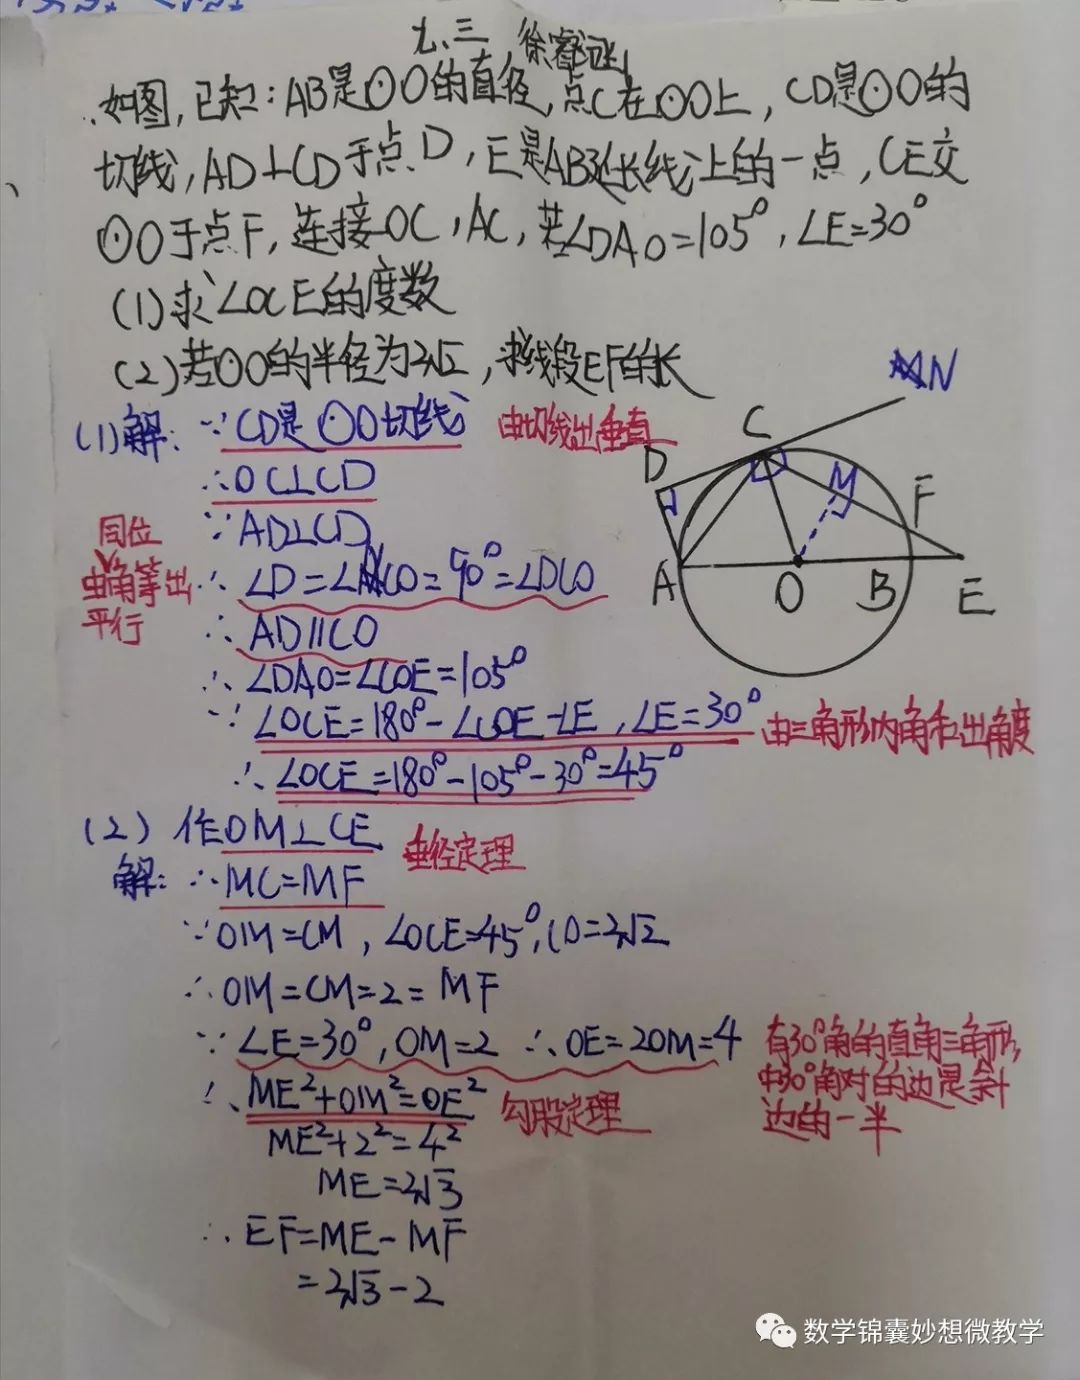 九、三 徐睿
如图,已知:AB是⊙O的直径,点C在⊙O上,CD是⊙O的
切线,AD⊥CD于点D,E是AB延长线上的一点,CE交
⊙O于点F,连接OC,AC,若∠DAO=105°,∠E=30°
(1)求∠OCE的度数
(2)若⊙O的半径为2√2,求线段EF的长
N
(1)解:∵CD是⊙O切线 由切线出垂直
C
∴OC⊥CD
D
M
F
∵AD⊥CD
同位
由角等出
平行
∴∠D=∠NCO=90°=∠DCO
A O B E
∴AD∥CO
∴∠DAO=∠COE=105°
∵∠OCE=180°-∠COE-∠E,∠E=30° 由三角形内角和出角度
∴∠OCE=180°-105°-30°=45°
(2)作OM⊥CE 垂径定理
解:∴MC=MF
∵OM=CM,∠OCE=45°,CO=2√2
∴OM=CM=2=MF
∵∠E=30°,OM=2 ∴OE=2OM=4
有30°角的直角三角形
中30°角对的边是斜
边的一半
∴ME²+OM²=OE² 勾股定理
ME²+2²=4²
ME=2√3
∴EF=ME-MF
=2√3-2
数学锦囊妙想微教学